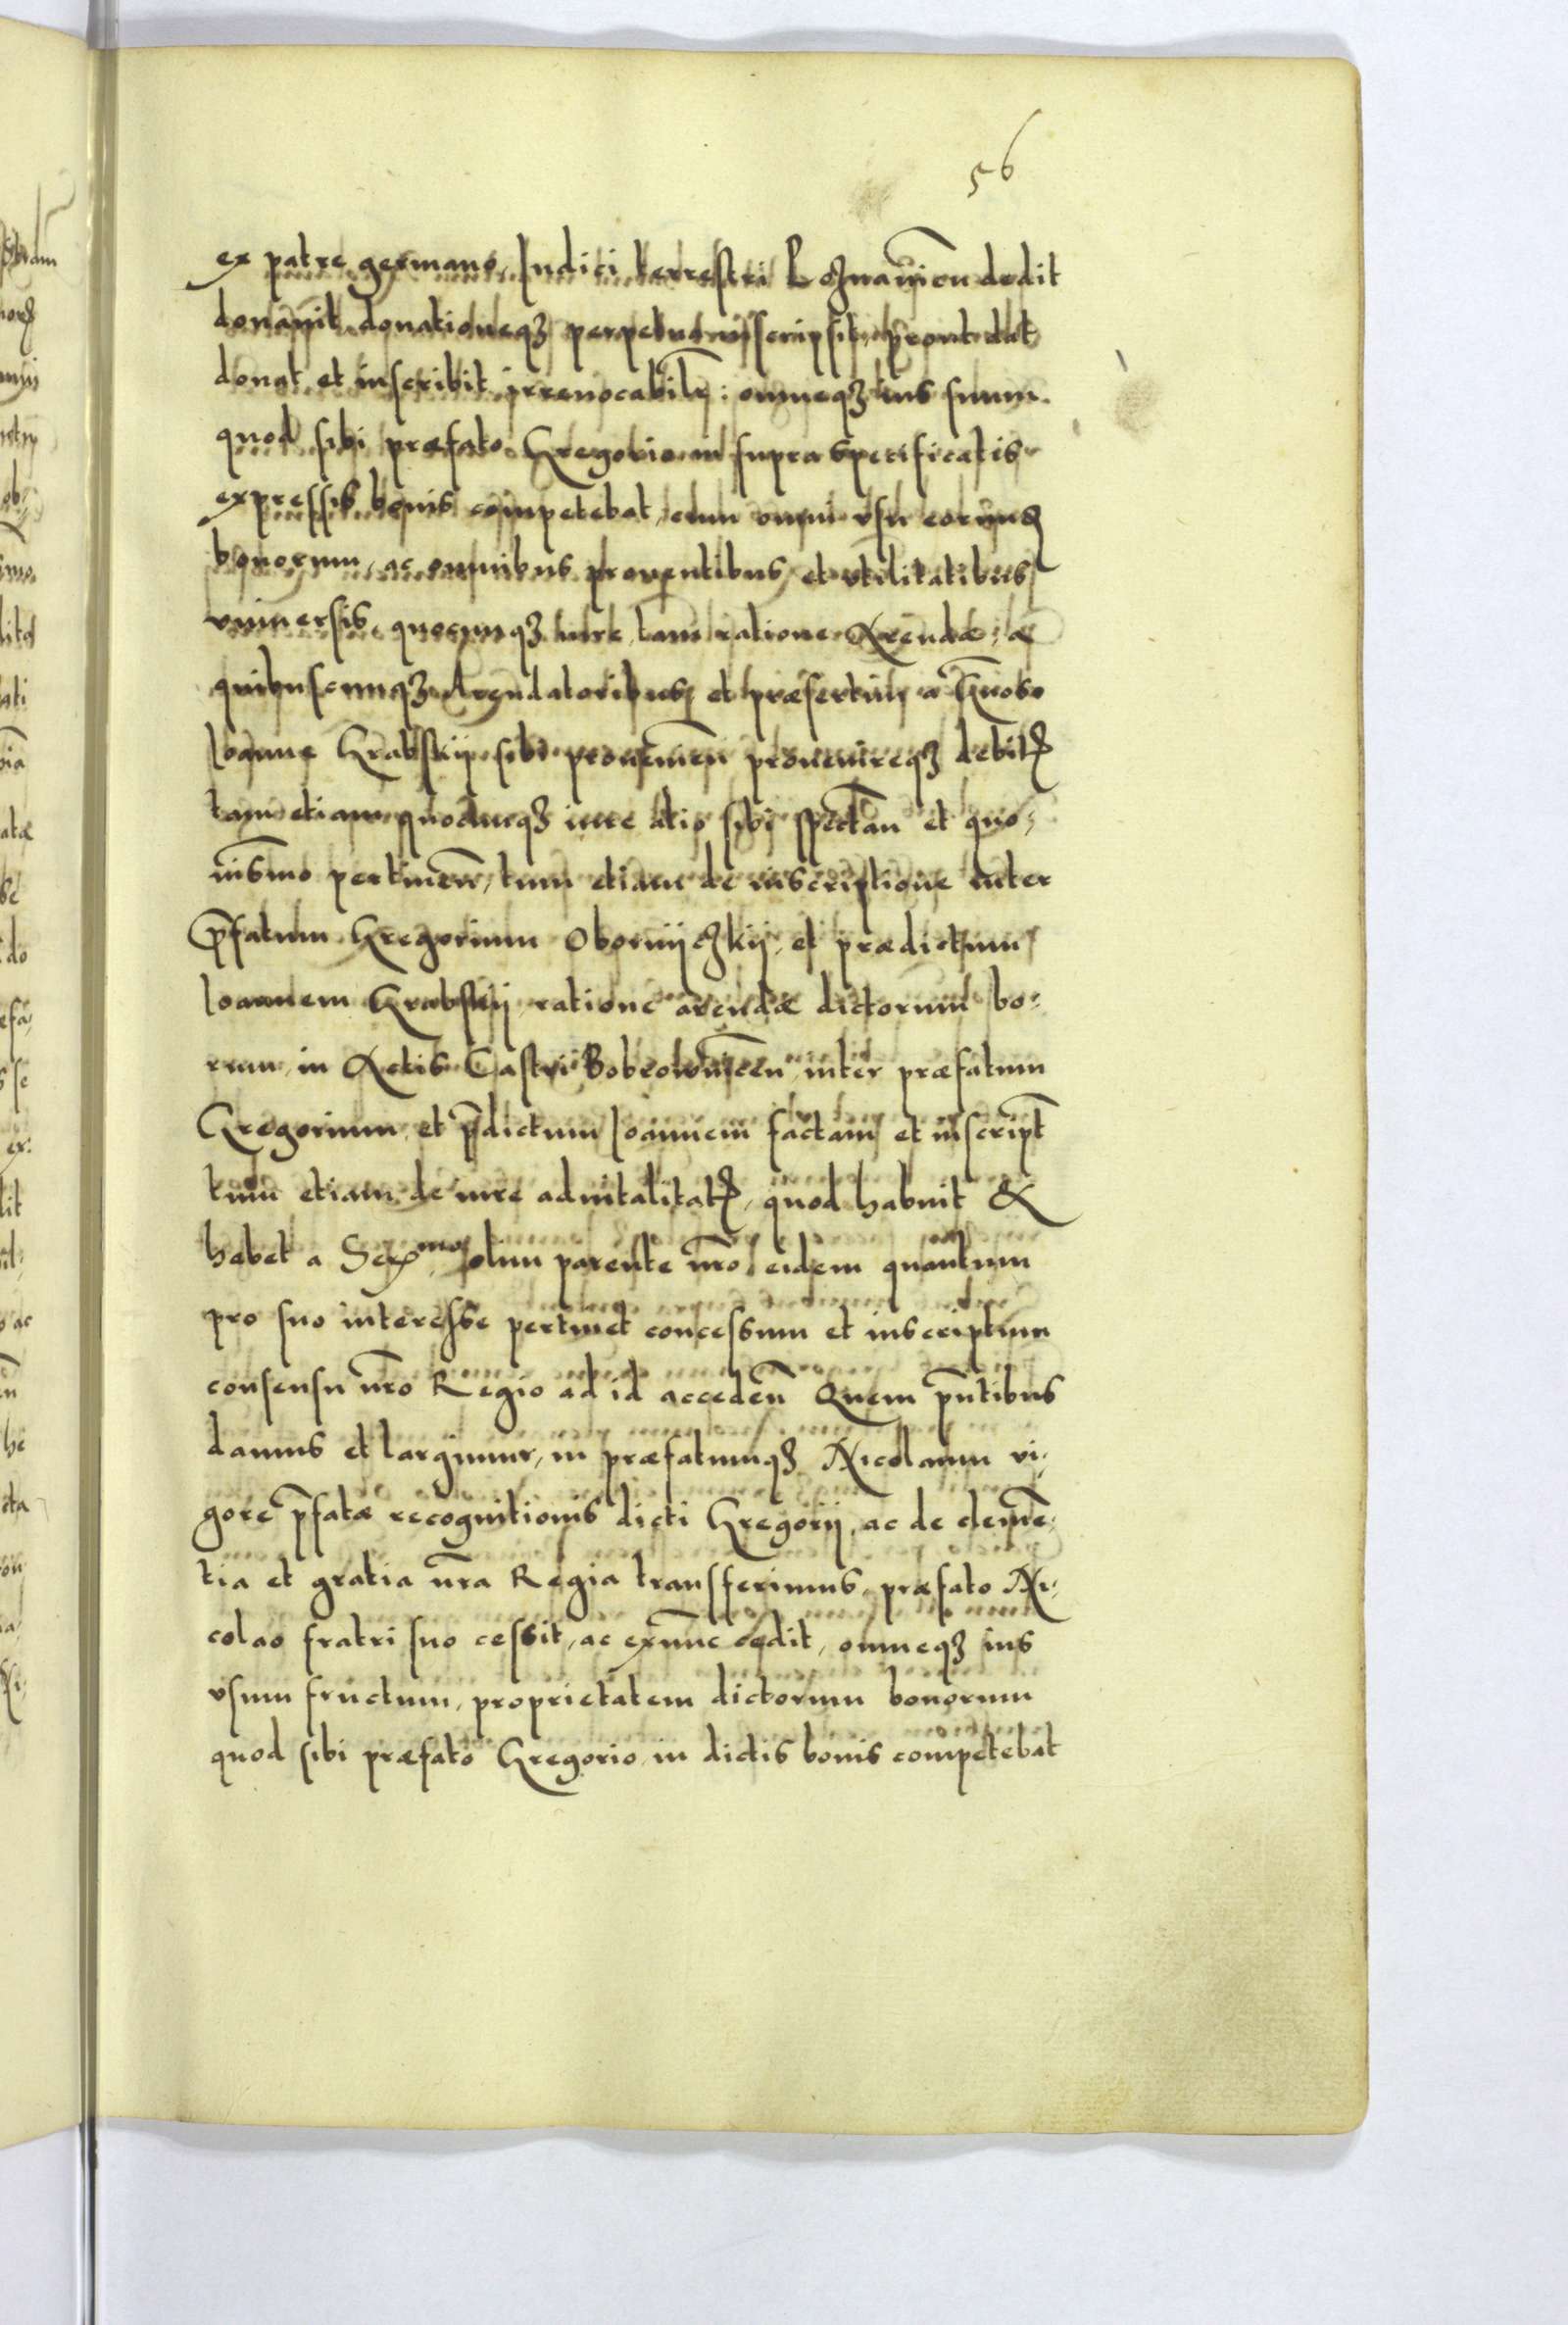 56
ex patre germano, Iudici terrestri Poznanien dedit
donavit donationeqȝ perpetua inscripsit, prout dat
donat et inscribit irrevocabilr: omneqȝ ius suum
quod sibi præfato Gregorio in supra specificatis
expressis bonis competebat, cum omni usu eorundē
bonorum, ac omnibus proventibus, et utilitatibus
universis, quocunqȝ iure, tam ratione Arendæ, a
quibuscunqȝ Arendatoribus, et præsertim a Gnoso
Ioanne Grabskij sibi provenien provenireqȝ debitę
tam etiam quocunqȝ iure alio sibi spectan et quo-
vismo pertinen, tum etiam de inscriptione inter
p̄fatum Gregorium Obornijczkij, et prædictum
Ioannem Grabskij ratione arendæ dictorum bo-
rum, in Actis Castri Bobrownicen, inter præfatum
Gregorium, et p̄dictum Ioannem factam et inscript
tum etiam de iure advitalitatę, quod habuit &
habet a Ser^mo olim parente nr̄o eidem quantum
pro suo interesse pertinet concessum et inscriptum
consensu nr̄o Regio ad id acceden̄ Quem pn̄tibus
damus et largimur, in præfatumqȝ Nicolaum vi-
gore p̄fatæ recognitionis dicti Gregorij, ac de clemē-
tia et gratia nr̄a Regia transferimus, præfato Ni-
colao fratri suo cessit, ac ex nunc cedit, omneqȝ ius
usum fructum, proprietatem dictorum bonorum
quod sibi præfato Gregorio in dictis bonis competebat